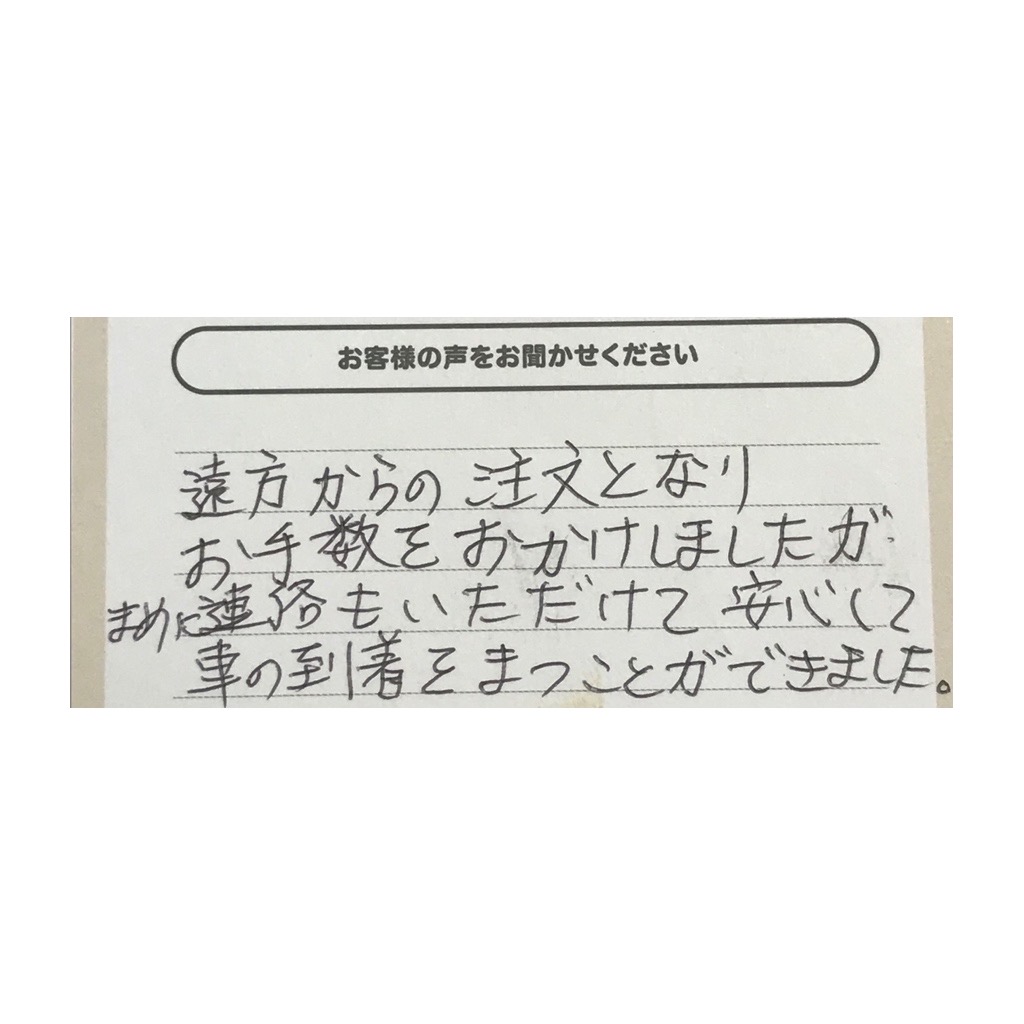 お客様の声をお聞かせください
遠方からの注文となり
お手数をおかけしましたが
まめに連絡もいただけて安心して
車の到着をまつことができました。